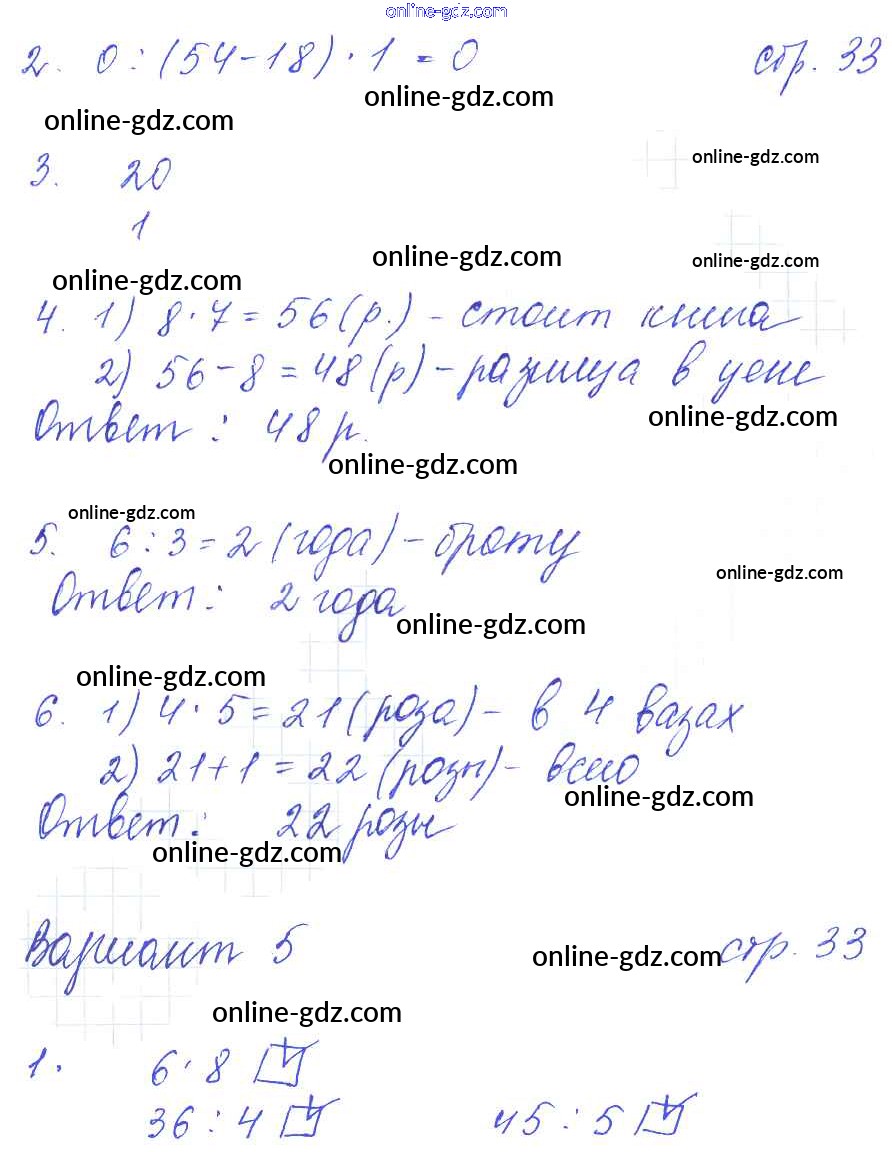 online-gdz.com
2. 0 : (54-18) · 1 = 0 стр. 33
online-gdz.com
online-gdz.com
3. 20 online-gdz.com
1
online-gdz.com online-gdz.com
online-gdz.com
4. 1) 8 · 7 = 56 (р.) - стоит книга
2) 56 - 8 = 48 (р) - разница в цене
Ответ : 48 р. online-gdz.com
online-gdz.com
online-gdz.com
5. 6 : 3 = 2 (года) - брату
online-gdz.com
Ответ : 2 года
online-gdz.com
online-gdz.com
6. 1) 4 · 5 = 21 (роза) - в 4 вазах
2) 21 + 1 = 22 (розы) - всего
online-gdz.com
Ответ : 22 розы
online-gdz.com
Вариант 5 online-gdz.com стр. 33
online-gdz.com
1. 6 · 8
36 : 4 45 : 5